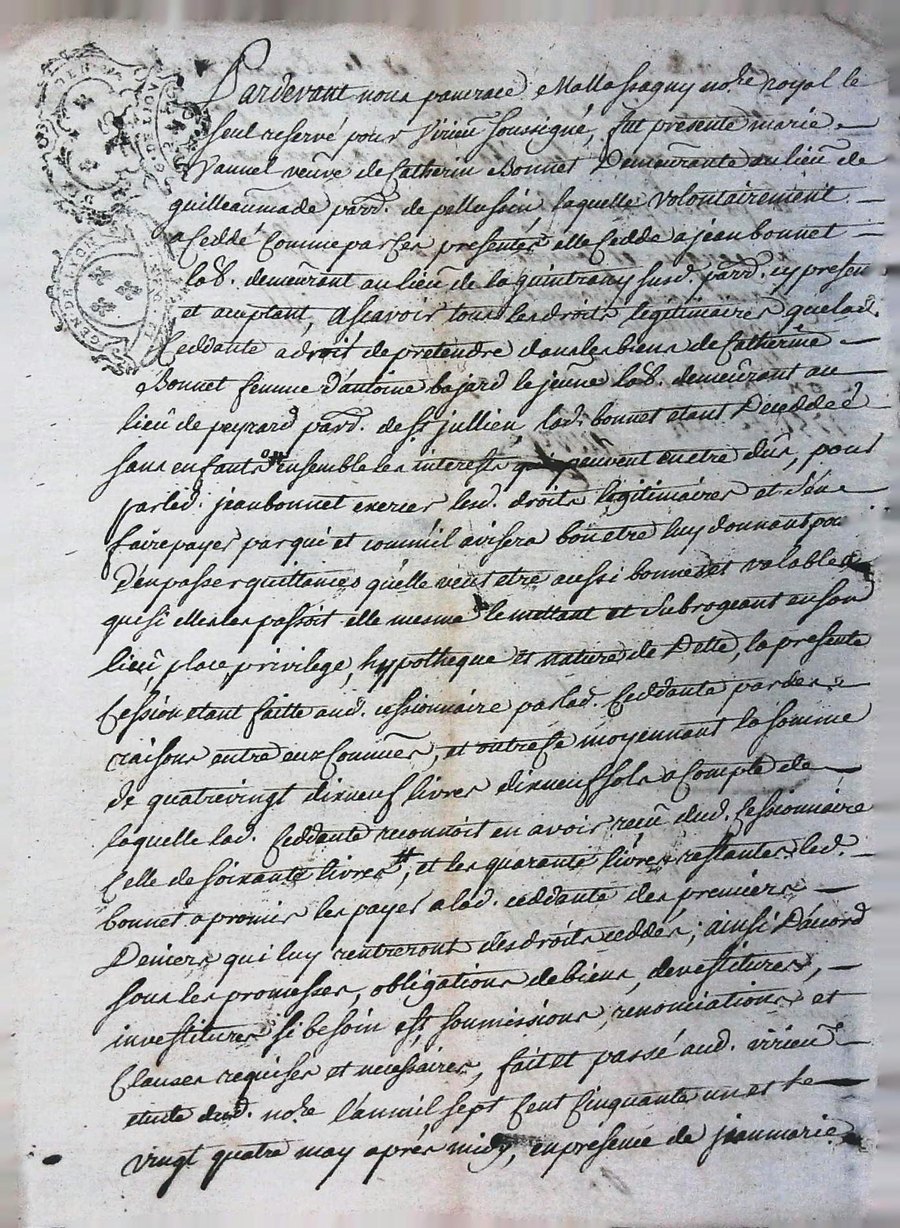 Pardevant nous pancrace Mallassagny no.re royal le
seul reservé pour Virieu soussigné, fut presente marie
Vannel veuve de Catherin Bonnet Demeurante au lieu de
guilleaumade parr. de pellussin laquelle volontairement
a Ceddé comme par ces presentes elle Cedde a jean bonnet
lab. demeurant au lieu de la quintrany susd. parr. cy present
et aceptant, Ascavoir tous les droits legitimaires que lad.
Ceddante a droit de pretendre dans les biens de Catherine
Bonnet femme d'antoine bajard le jeune lab. demeurant au
lieu de peyrard parr. de st jullien lad. bonnet etant Deceddeé
sans enfants ensemble les interests qui peuvent en etre dus, pour
par led. jean bonnet exercer lesd. droits legitimaires et s'en
faire payer par qui et comm'il avisera bon etre luy donnant pou
d'en passer quittances qu'elle veut etre aussi bonnes et valables
que si elle les passoit elle mesme le mettant et subrogeant en son
lieu, place, privilege, hypotheque et nature de Dette, la presente
Cession etant faitte aud. cessionnaire par lad. Ceddante par des
raisons entre eux Connues, et outre se moyennant la somme
de quatrevingt dixneuf livres dixneuf sols a Compte de
laquelle lad. Ceddante reconnoit en avoir reçu dud. Cessionnaire
Celle de soixante livres, et les quarante livres restantes led.
bonnet a promis les payer a lad. ceddante des premiers
Deniers qui luy rentreront des droits ceddés; ainsi D'acord
sous les promesses, obligations de biens, devestitures,
investitures si besoin est, soumissions, renonciations et
Clauses requises et necessaires, fait et passé aud. virieu
etude dud. no.re l'an mil sept Cent Cinquante un et le
vingt quatre may aprés midy, en presence de jean marie